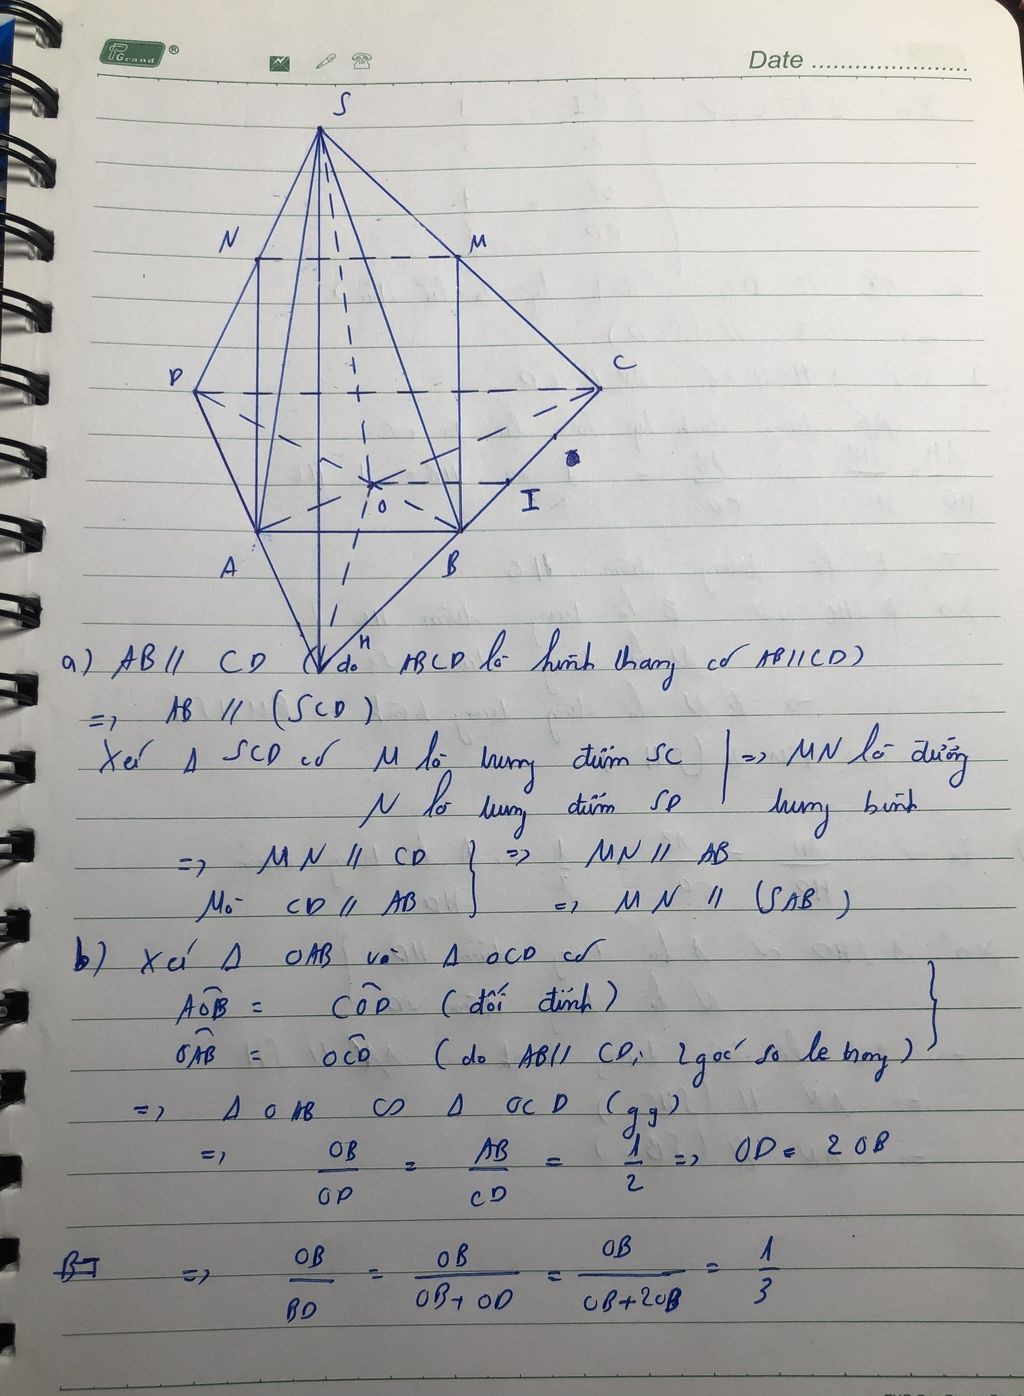 PGrand ®
Date
S
N
M
D
C
O
I
A
B
H
a) AB // CD (do ABCD là hình thang có AB // CD)
=> AB // (SCD)
Xét Δ SCD có M là trung điểm SC => MN là đường
N là trung điểm SD trung bình
=> MN // CD => MN // AB
Mà CD // AB => MN // (SAB)
b) Xét Δ OAB và Δ OCD có
AÔB = CÔD (đối đỉnh)
OÂB = OĈD (do AB // CD, 2 góc so le trong)
=> Δ OAB ∽ Δ OCD (gg)
=> OB/OD = AB/CD = 1/2 => OD = 2 OB
=> OB/BD = OB/(OB + OD) = OB/(OB + 2OB) = 1/3